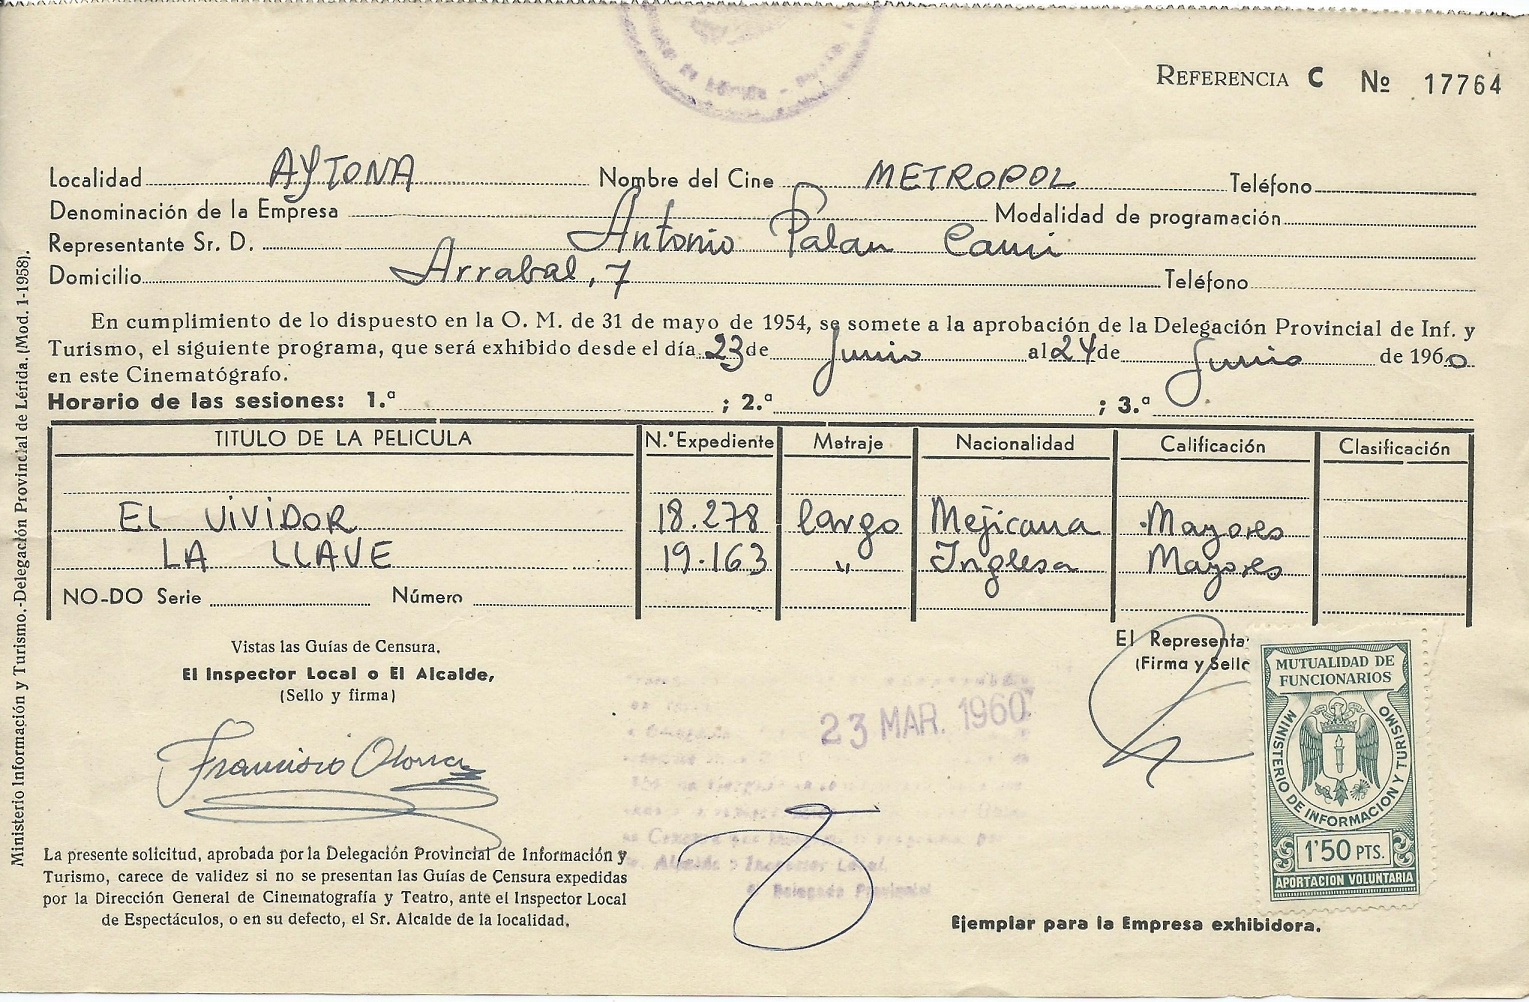 REFERENCIA C Nº 17764
Localidad AYTONA Nombre del Cine METROPOL Teléfono
Denominación de la Empresa Modalidad de programación
Representante Sr. D. Antonio Palau Cami
Domicilio Arrabal, 7 Teléfono
En cumplimiento de lo dispuesto en la O. M. de 31 de mayo de 1954, se somete a la aprobación de la Delegación Provincial de Inf. y
Turismo, el siguiente programa, que será exhibido desde el día 23 de Junio al 24 de Junio de 1960
en este Cinematógrafo.
Horario de las sesiones: 1.ª ; 2.ª ; 3.ª
TITULO DE LA PELICULA N.º Expediente Metraje Nacionalidad Calificación Clasificación
EL ViViDOR 18.278 largo Mejicana Mayores
LA LLAVE 19.163 " Inglesa Mayores
NO-DO Serie Número
Vistas las Guías de Censura.
El Inspector Local o El Alcalde,
(Sello y firma)
Francisco
El Representa
(Firma y Sello
23 MAR. 1960
Alcalde o Inspector Local.
El Delegado Provincial
MUTUALIDAD DE
FUNCIONARIOS
MINISTERIO DE INFORMACION Y TURISMO
1'50 PTS.
APORTACION VOLUNTARIA
La presente solicitud, aprobada por la Delegación Provincial de Información y
Turismo, carece de validez si no se presentan las Guías de Censura expedidas
por la Dirección General de Cinematografía y Teatro, ante el Inspector Local
de Espectáculos, o en su defecto, el Sr. Alcalde de la localidad.
Ejemplar para la Empresa exhibidora.
Ministerio Información y Turismo.-Delegación Provincial de Lérida. (Mod. 1-1958).